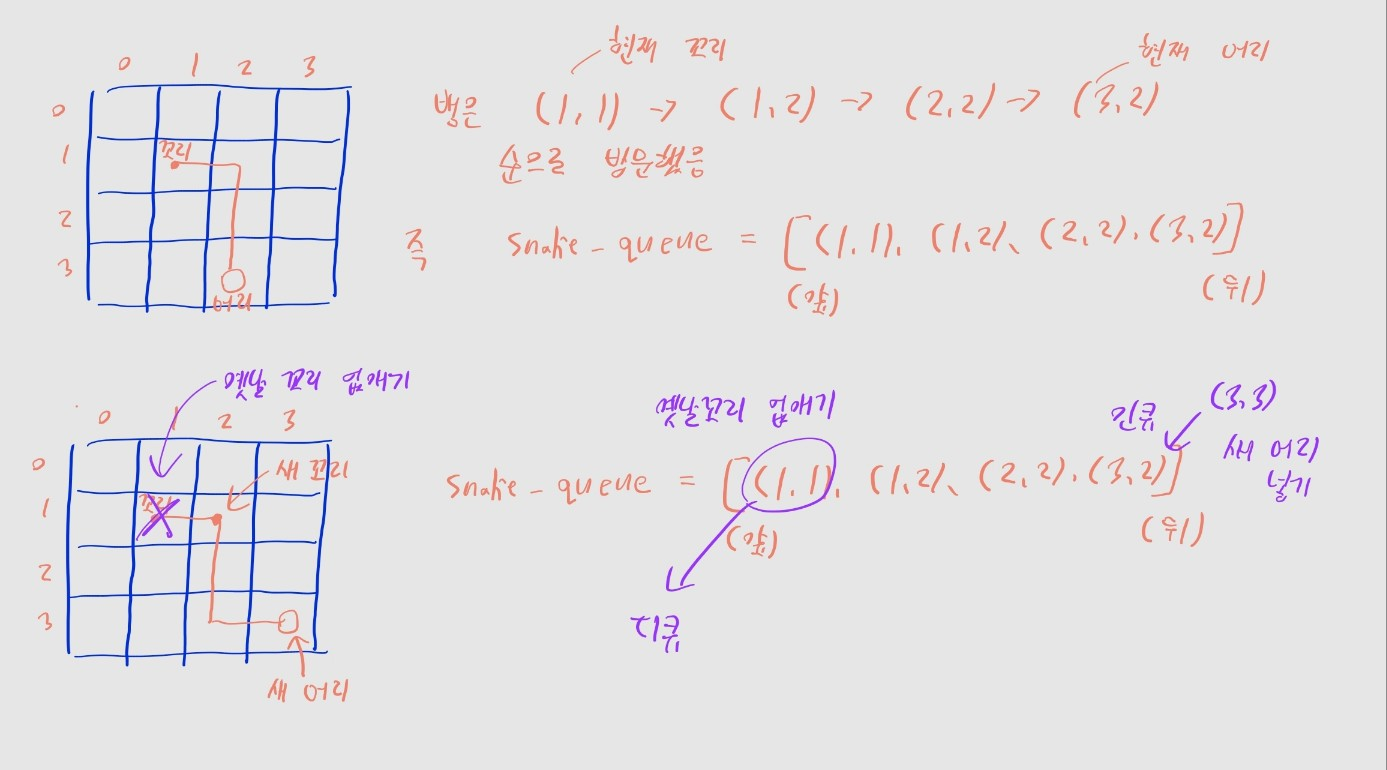 현재 꼬리
현재 머리
0 1 2 3
0
1
2
3
꼬리
머리
뱀은 (1,1) → (1,2) → (2,2) → (3,2)
순으로 방문했음
즉 snake_queue = [(1,1), (1,2), (2,2), (3,2)]
(앞) (뒤)
옛날 꼬리 없애기
0 1 2 3
0
1
2
3
꼬리
새 꼬리
새 머리
옛날꼬리 없애기
인큐 (3,3)
새 머리
넣기
snake_queue = [(1,1), (1,2), (2,2), (3,2)]
(앞) (뒤)
디큐